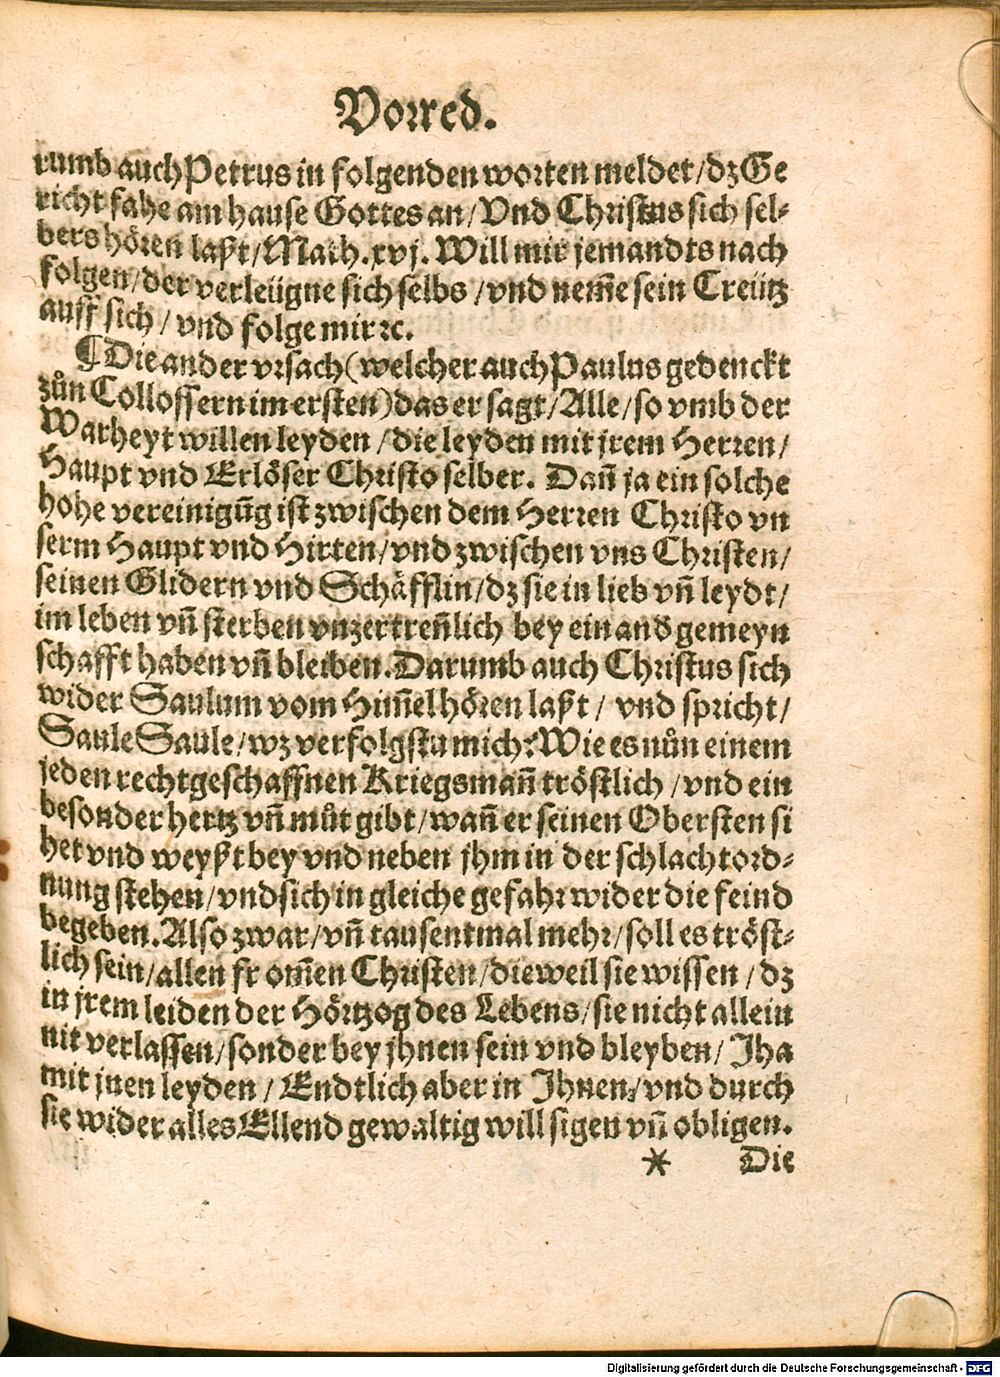 Vorred.
rumb auch Petrus in folgenden worten meldet/dz Ge
richt fahe am hause Gottes an/Vnd Christus sich sel-
bers hören laßt/Math.xvj. Will mir jemandts nach
folgen/der verleügne sich selbs/vnd nem̄e sein Creütz
auff sich/vnd folge mir ꝛc.
¶ Die ander vrsach(welcher auch Paulus gedenckt
zůn Collossern im ersten)das er sagt/Alle/so vmb der
Warheyt willen leyden/die leyden mit jrem Herren/
Haupt vnd Erlöser Christo selber. Dañ ja ein solche
hohe vereinigūg ist zwischen dem Herren Christo vn
serm Haupt vnd Hirten/vnd zwischen vns Christen/
seinen Glidern vnd Schäfflin/dz sie in lieb vñ leydt/
im leben vñ sterben vnzertreñlich bey einand gemeyn
schafft haben vñ bleiben.Darumb auch Christus sich
wider Saulum vom Him̄el hören laßt/ vnd spricht/
Saule Saule/wz verfolgstu mich?Wie es nůn einem
jeden rechtgeschaffnen Kriegsmañ tröstlich/vnd ein
besonder hertz vñ můt gibt/wañ er seinen Obersten si
het vnd weyßt bey vnd neben jhm in der schlachtord-
nung stehen/vnd sich in gleiche gefahr wider die feind
begeben.Also zwar/vñ tausentmal mehr/soll es tröst-
lich sein/allen from̄en Christen/dieweil sie wissen/dz
in jrem leiden der Hörtzog des Lebens/sie nicht allein
nit verlassen/sonder bey jhnen sein vnd bleyben/Jha
mit jnen leyden/Endtlich aber in Jhnen/vnd durch
sie wider alles Ellend gewaltig will sigen vñ obligen.
* Die
Digitalisierung gefördert durch die Deutsche Forschungsgemeinschaft - DFG